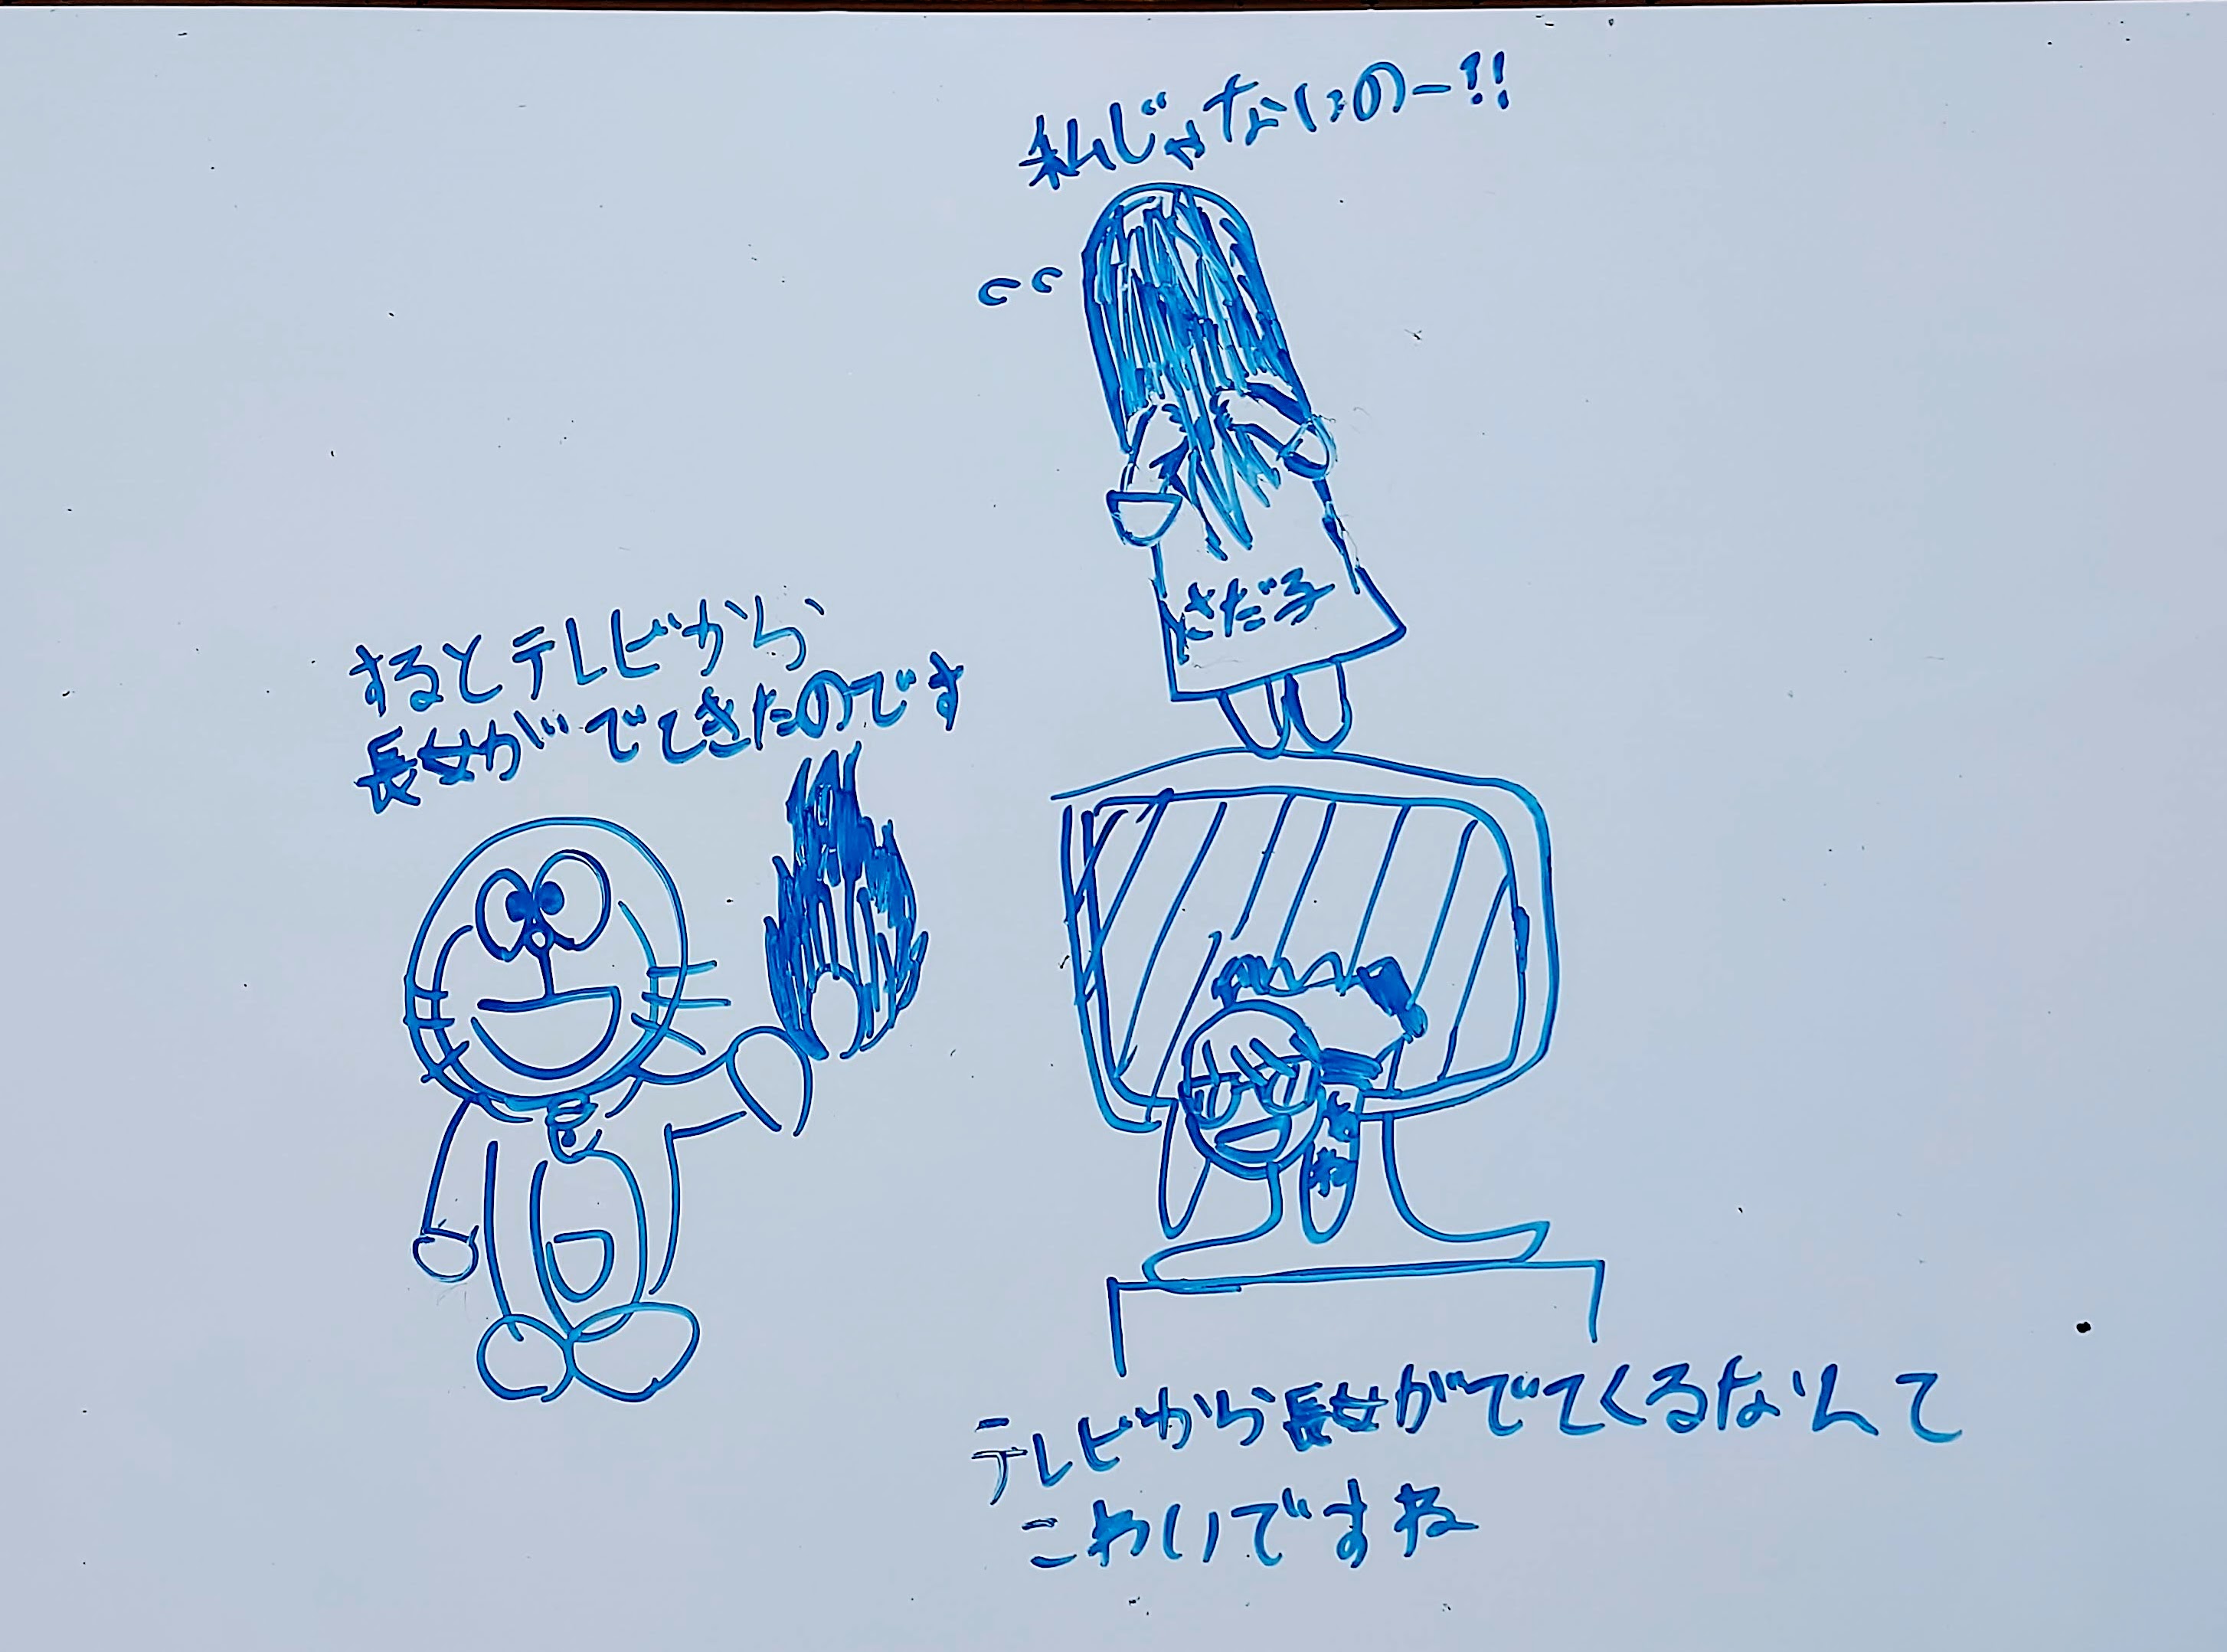 私じゃないのー!!
さだ子
するとテレビから
長女がでてきたのです
テレビから長女がでてくるなんて
こわいですね